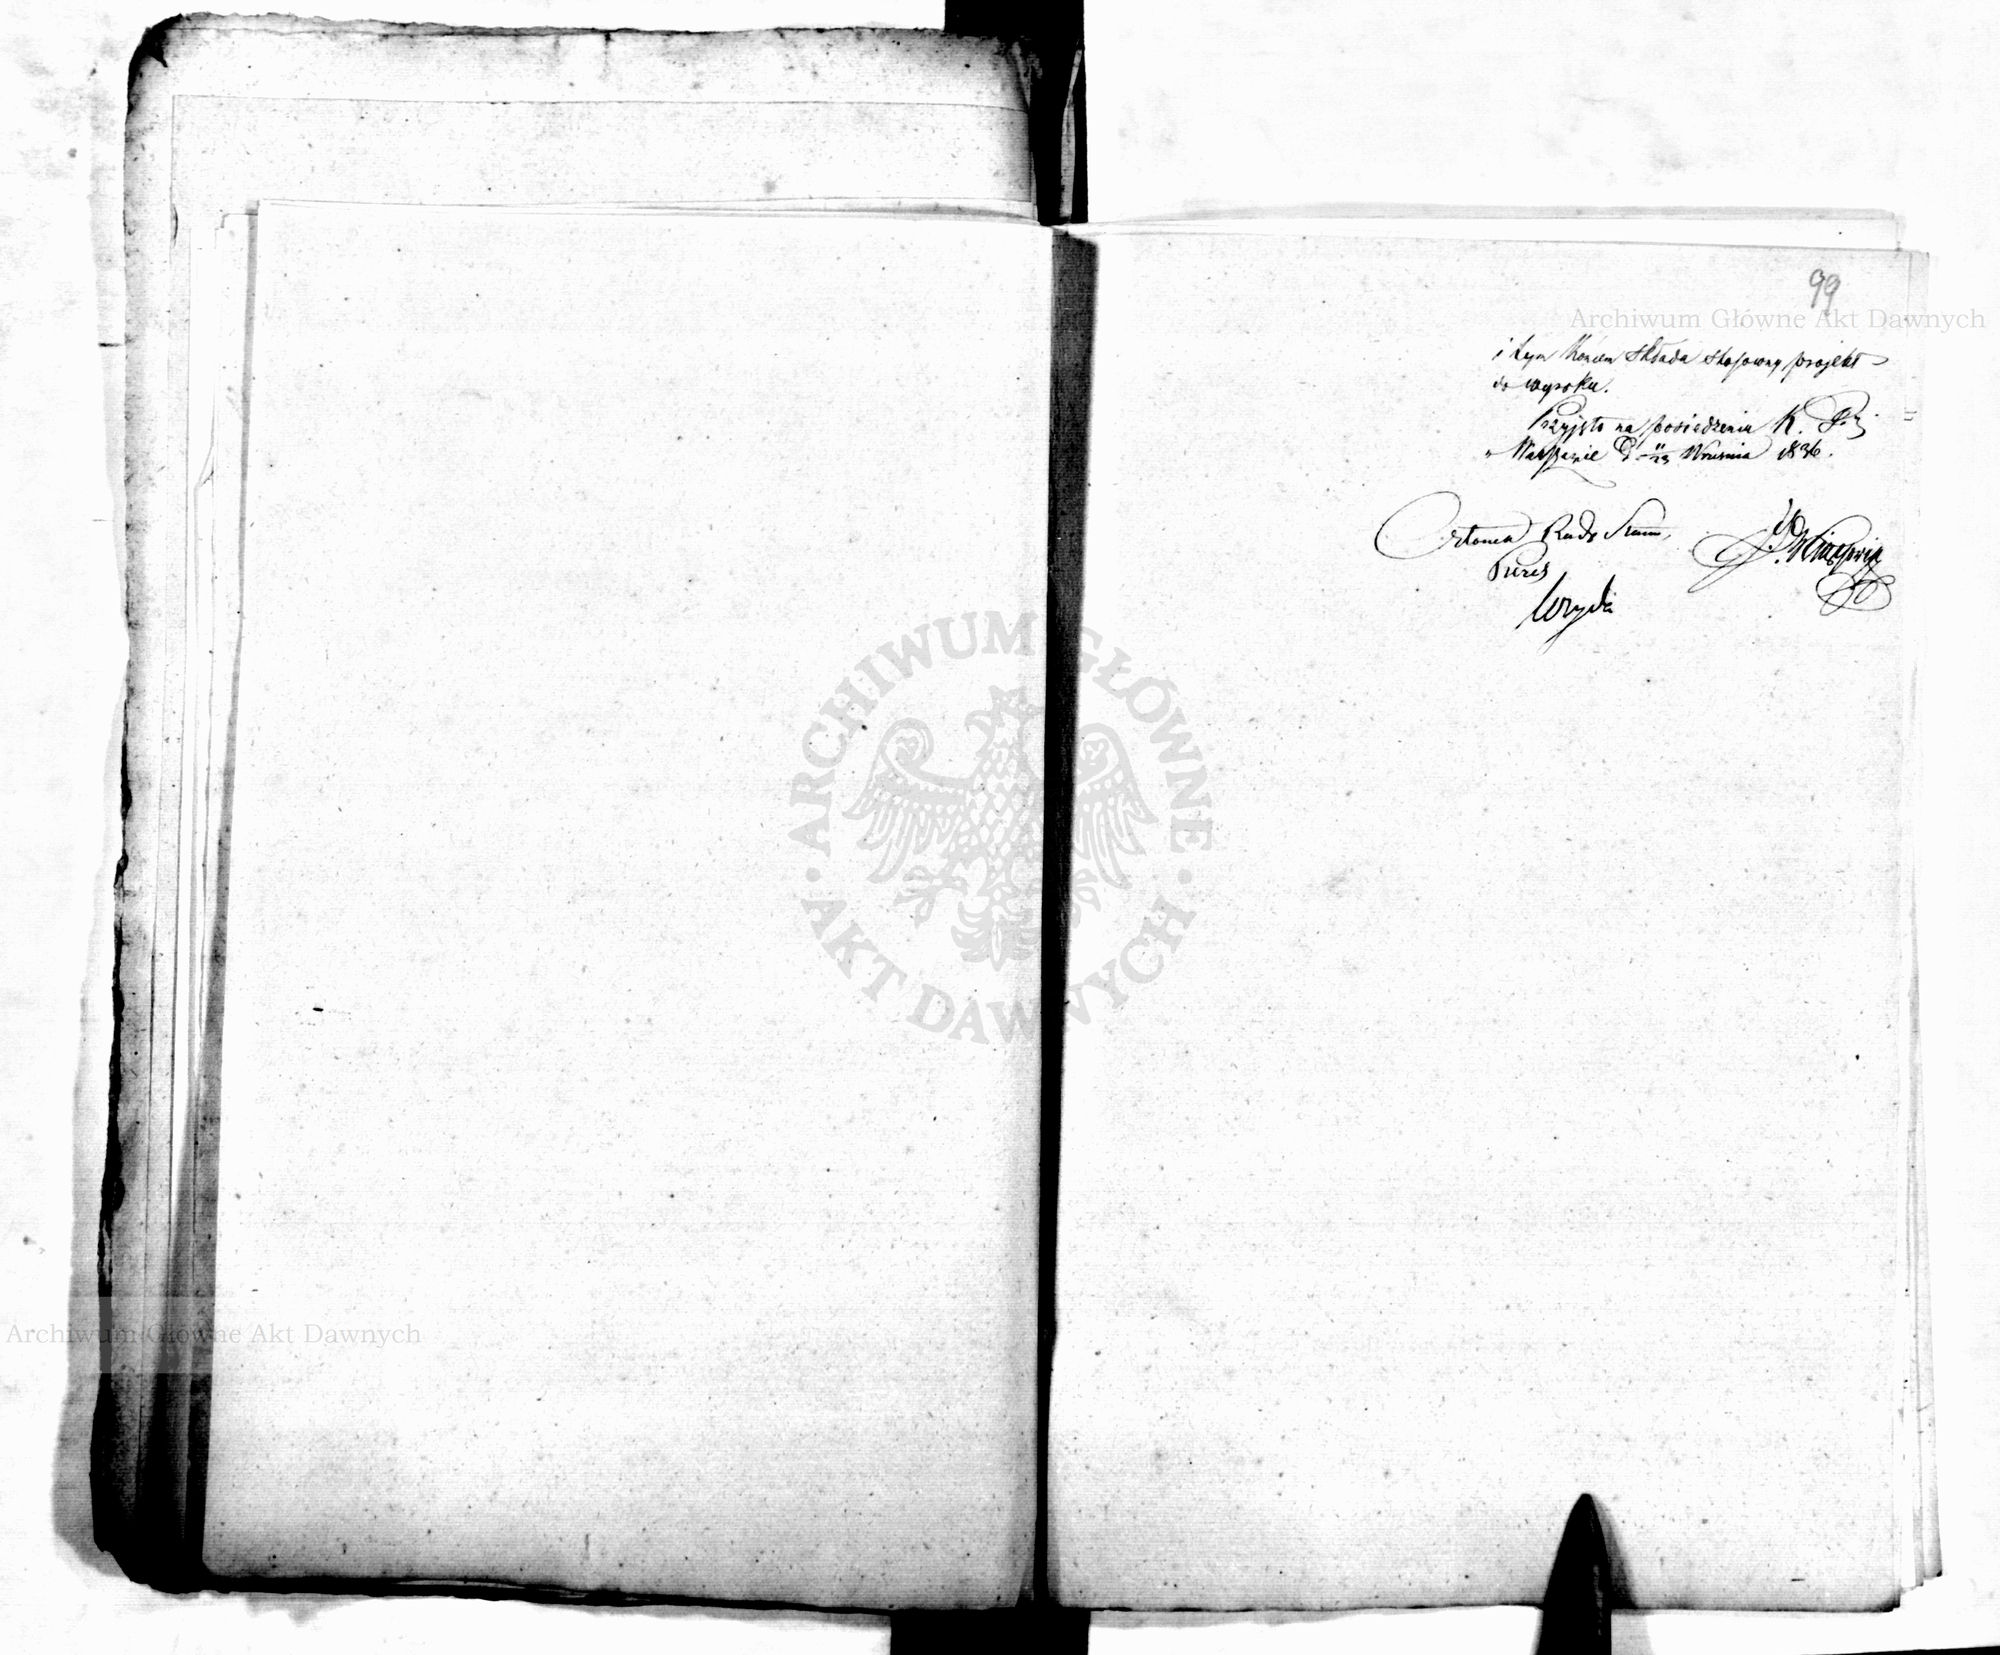 99
Archiwum Główne Akt Dawnych
i tym końcem składa stosowny projekt
do wyroku.
Przyjęto na posiedzeniu K.
w Warszawie d 11/23 Września 1836.
Członek Rady Stanu,
Prezes
ARCHIWUM GŁÓWNE
AKT DAWNYCH
Archiwum Główne Akt Dawnych